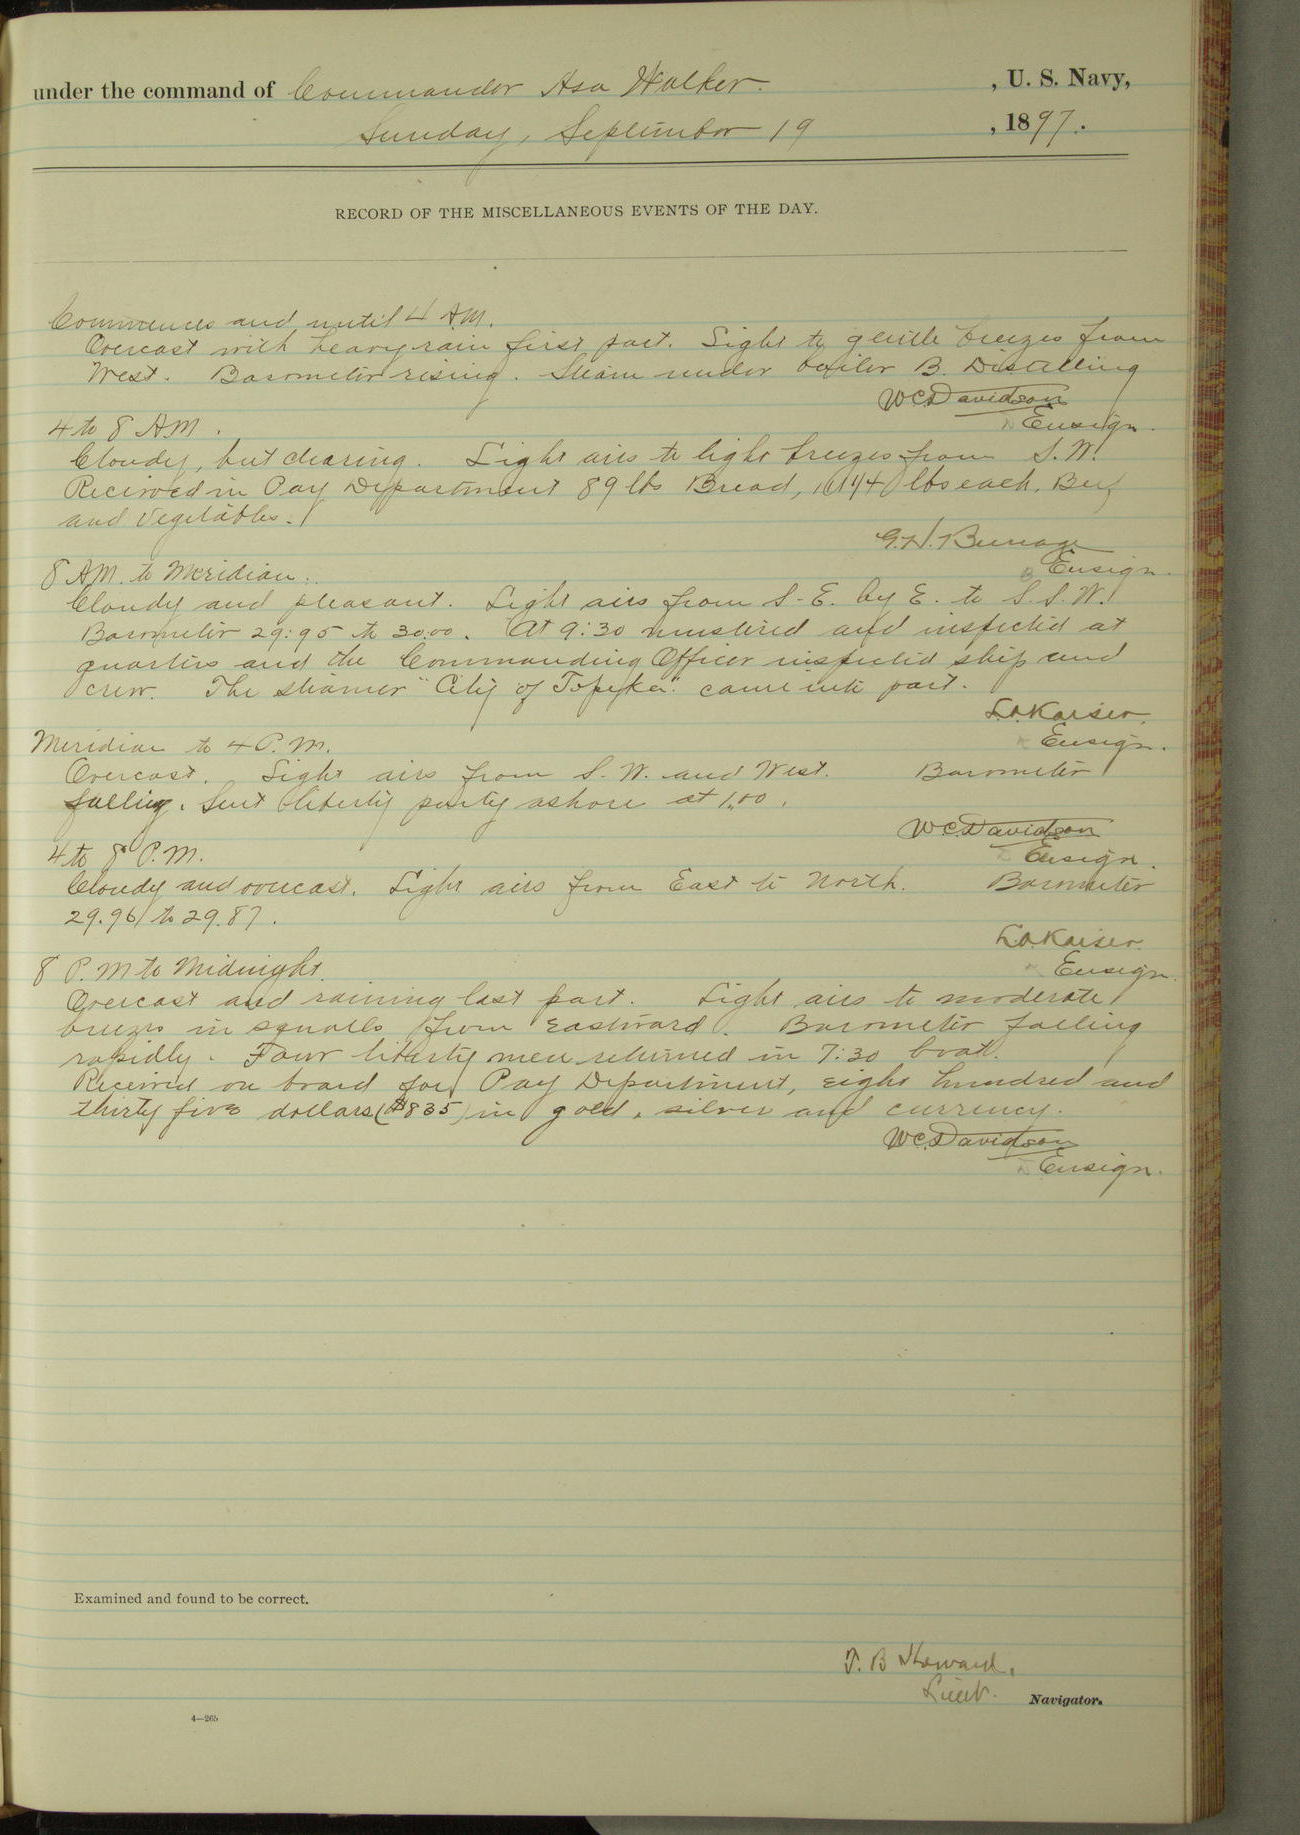 under the command of Commander Asa Walker. , U. S. Navy,
Sunday, September 19 , 1897.
RECORD OF THE MISCELLANEOUS EVENTS OF THE DAY.
Commences and until 4 A.M.
Overcast with heavy rain first part. Light to gentle breezes from
West. Barometer rising. Steam under boiler B. Distilling
W.C. Davidson
Ensign.
4 to 8 A.M.
Cloudy, but clearing. Light airs to light breezes from S.W.
Received in Pay Department 89 lbs Bread, 144 lbs each, Beef
and Vegetables.
G.H. Burrage
Ensign.
8 A.M. to Meridian.
Cloudy and pleasant. Light airs from S-E. by E. to S.S.W.
Barometer 29:95 to 30.00. At 9:30 mustered and inspected at
quarters and the Commanding Officer inspected ship and
crew. The steamer "City of Topeka" came into port.
L.A. Kaiser.
Ensign.
Meridian to 4 P.M.
Overcast. Light airs from S.W. and West. Barometer
falling. Sent liberty party ashore at 1.00.
W.C. Davidson
Ensign.
4 to 8 P.M.
Cloudy and overcast. Light airs from East to North. Barometer
29.96 to 29.87.
L.A. Kaiser.
Ensign.
8 P.M to Midnight.
Overcast and raining last part. Light airs to moderate
breezes in squalls from Eastward. Barometer falling
rapidly. Four liberty men returned in 7:30 boat.
Received on board for Pay Department, eight hundred and
thirty five dollars ($835) in gold, silver and currency.
W.C. Davidson
Ensign.
Examined and found to be correct.
T. B Howard,
Lieut. Navigator.
4—265